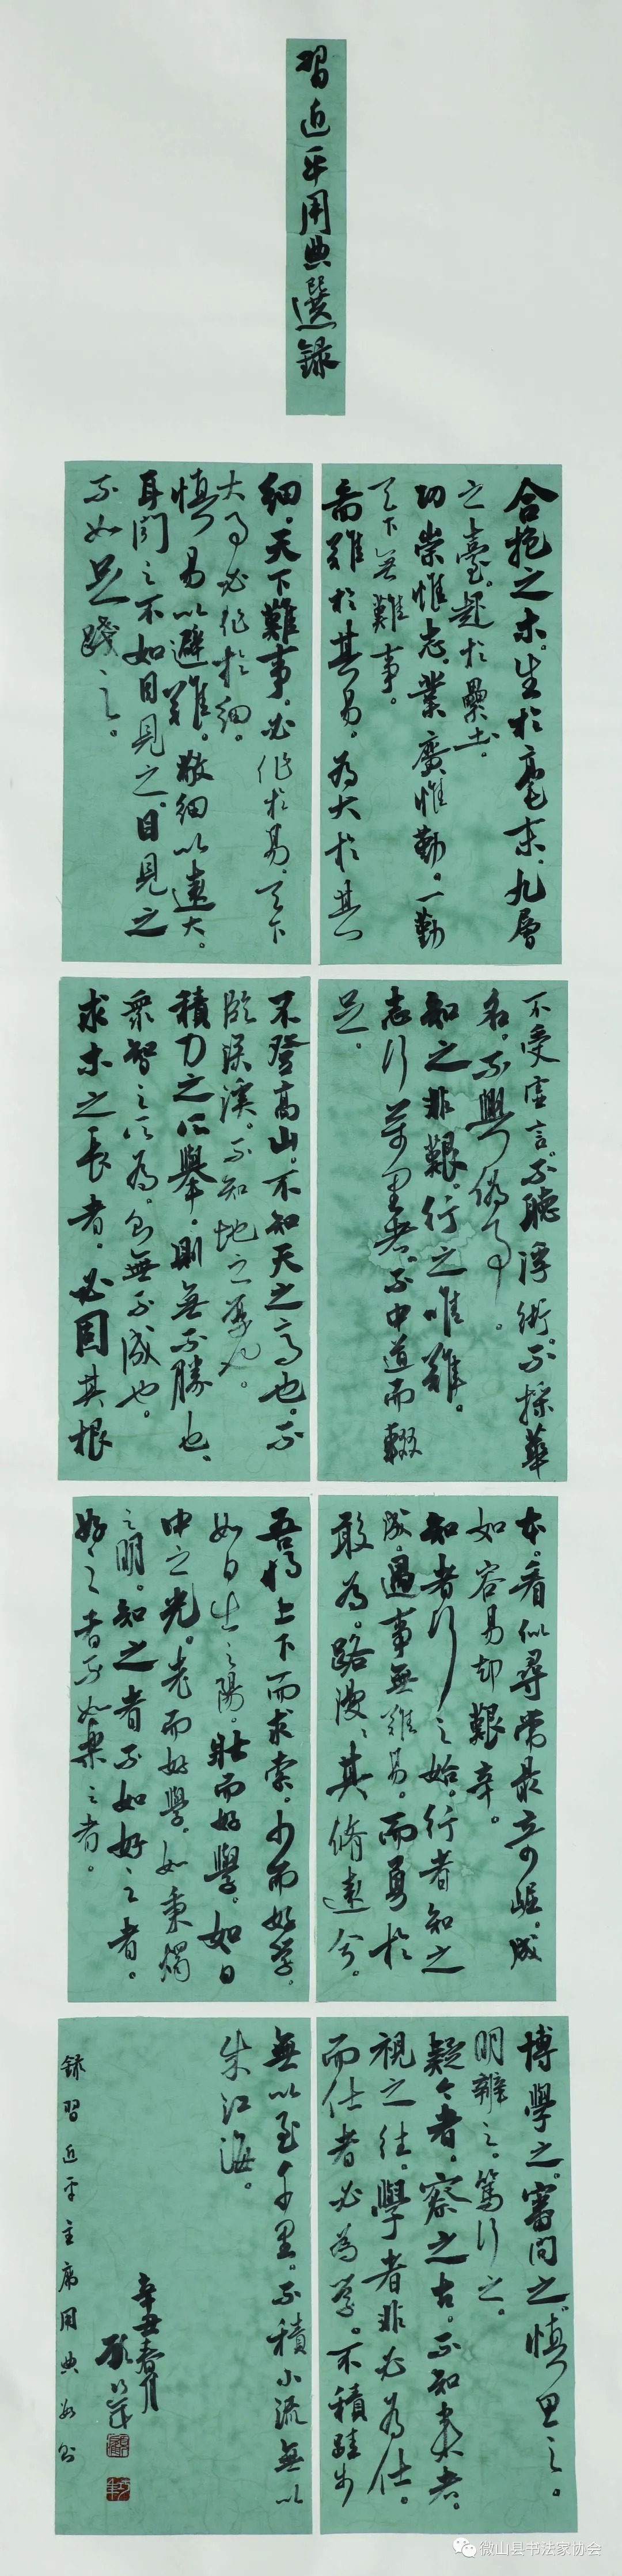 習近平用典選録
合抱之木。生於毫末、九層
之臺。起於壘土。
功崇惟志。業廣惟勤。一勤
天下無難事。
啚難於其易。為大於其
細。天下難事。必作於易、天下
大事必作於細。
慎易以避難。敬細以遠大。
耳聞之不如目見之。目見之
不如足踐之。
不受虛言。不聽浮術。不採華
名。不興偽事。
知之非艱。行之唯難。
志行萬里者。不中道而輟
足。
不登高山。不知天之高也。不
臨深溪。不知地之厚也。
積力之所舉。則無不勝也、
衆智之所為。則無不成也。
求木之長者。必固其根
本。看似尋常最奇崛。成
如容易却艱辛。
知者行之始。行者知之
成。遇事無難易。而勇於
敢為。路漫漫其脩遠兮。
吾將上下而求索。少而好學。
如日出之陽。壯而好學。如日
中之光。老而好學。如秉燭
之明。知之者不如好之者。
好之者不如樂之者。
博學之。審問之。慎思之。
明辨之。篤行之。
疑今者。察之古。不知來者。
視之往。學者非必為仕。
而仕者必為學。不積跬步
無以至千里。不積小流無以
成江海。
辛丑春月
録習近平主席用典數則
微山县书法家协会